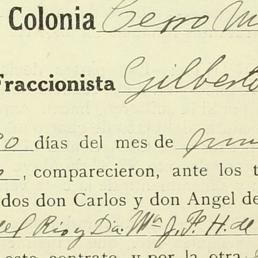 Colonia Cerro M
Fraccionista Gilberto
días del mes de
, comparecieron, ante los t
dos don Carlos y don Angel de
del Rio y Da. Mª J. P. H. de
este contrato, y por la otra